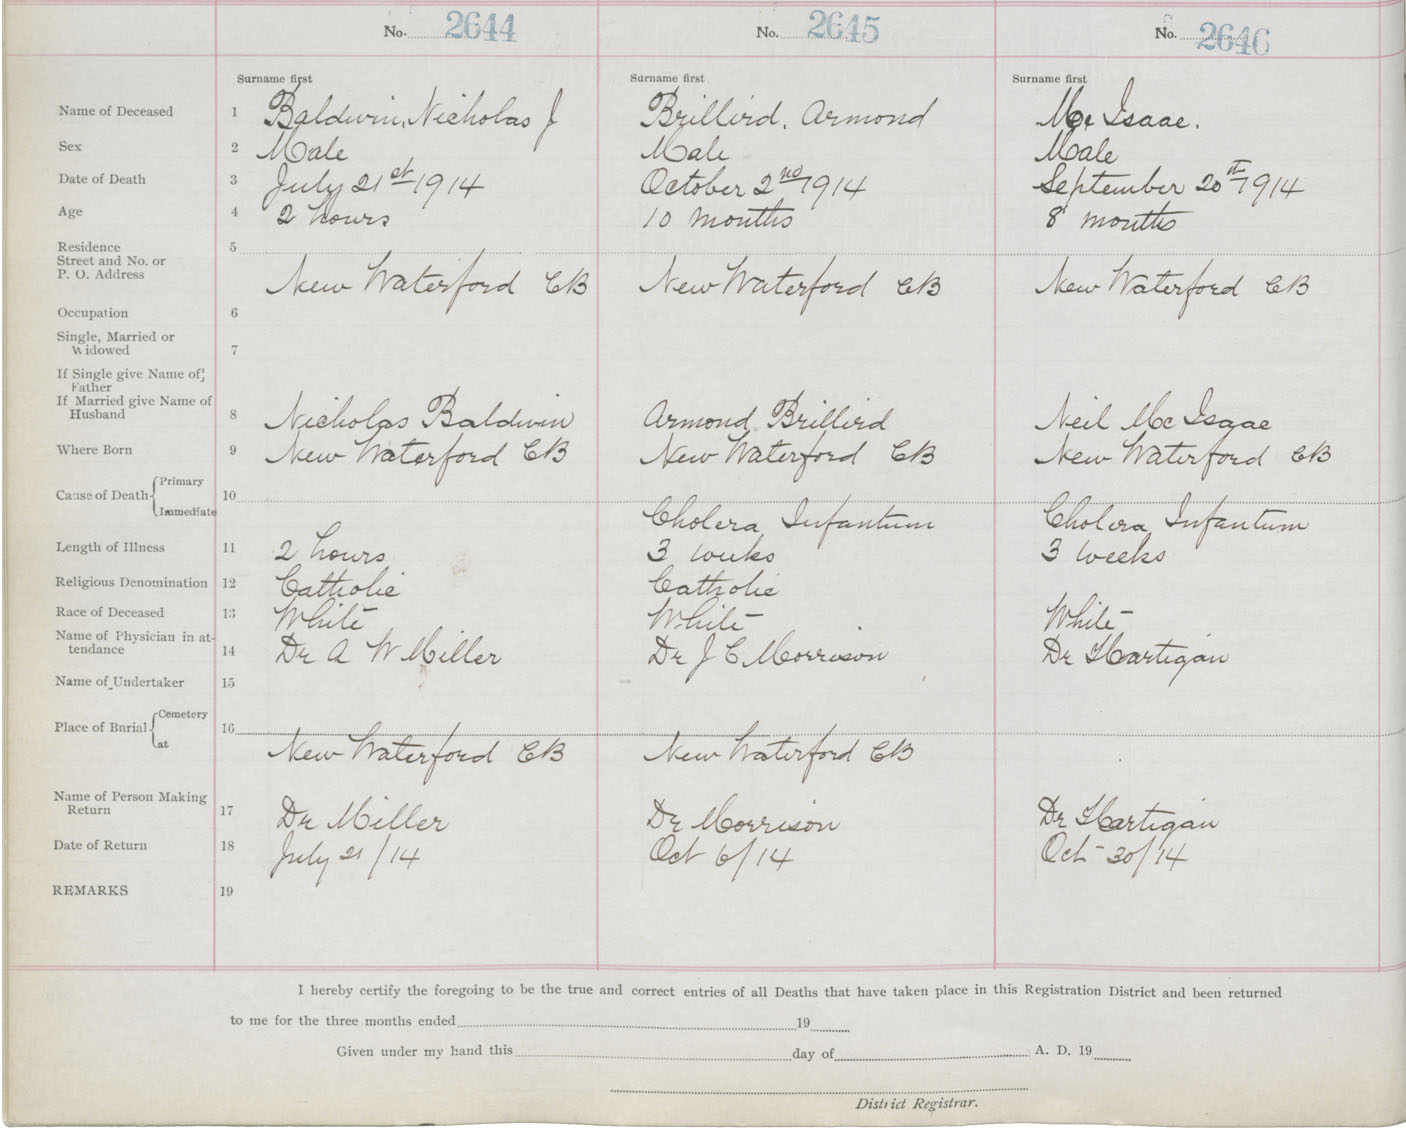 No. 2644 No. 2645 No. 2646
Surname first Surname first Surname first
Name of Deceased 1 Baldwin, Nicholas J Brillird, Armond Mc Isaac.
Sex 2 Male Male Male
Date of Death 3 July 21st 1914 October 2nd 1914 September 20th 1914
Age 4 2 hours 10 months 8 months
Residence 5
Street and No. or
P. O. Address New Waterford CB New Waterford CB New Waterford CB
Occupation 6
Single, Married or
Widowed 7
If Single give Name of
Father
If Married give Name of
Husband 8 Nicholas Baldwin Armond Brillird Neil Mc Isaac
Where Born 9 New Waterford CB New Waterford CB New Waterford CB
Cause of Death { Primary 10
Immediate Cholera Infantum Cholera Infantum
Length of Illness 11 2 hours 3 weeks 3 weeks
Religious Denomination 12 Catholic Catholic
Race of Deceased 13 White White White
Name of Physician in at-
tendance 14 Dr A W Miller Dr J C Morrison Dr Hartigan
Name of Undertaker 15
Place of Burial { Cemetery 16
at New Waterford CB New Waterford CB
Name of Person Making
Return 17 Dr Miller Dr Morrison Dr Hartigan
Date of Return 18 July 21/14 Oct 6/14 Oct 30/14
REMARKS 19
I hereby certify the foregoing to be the true and correct entries of all Deaths that have taken place in this Registration District and been returned
to me for the three months ended 19
Given under my hand this day of A. D. 19
District Registrar.